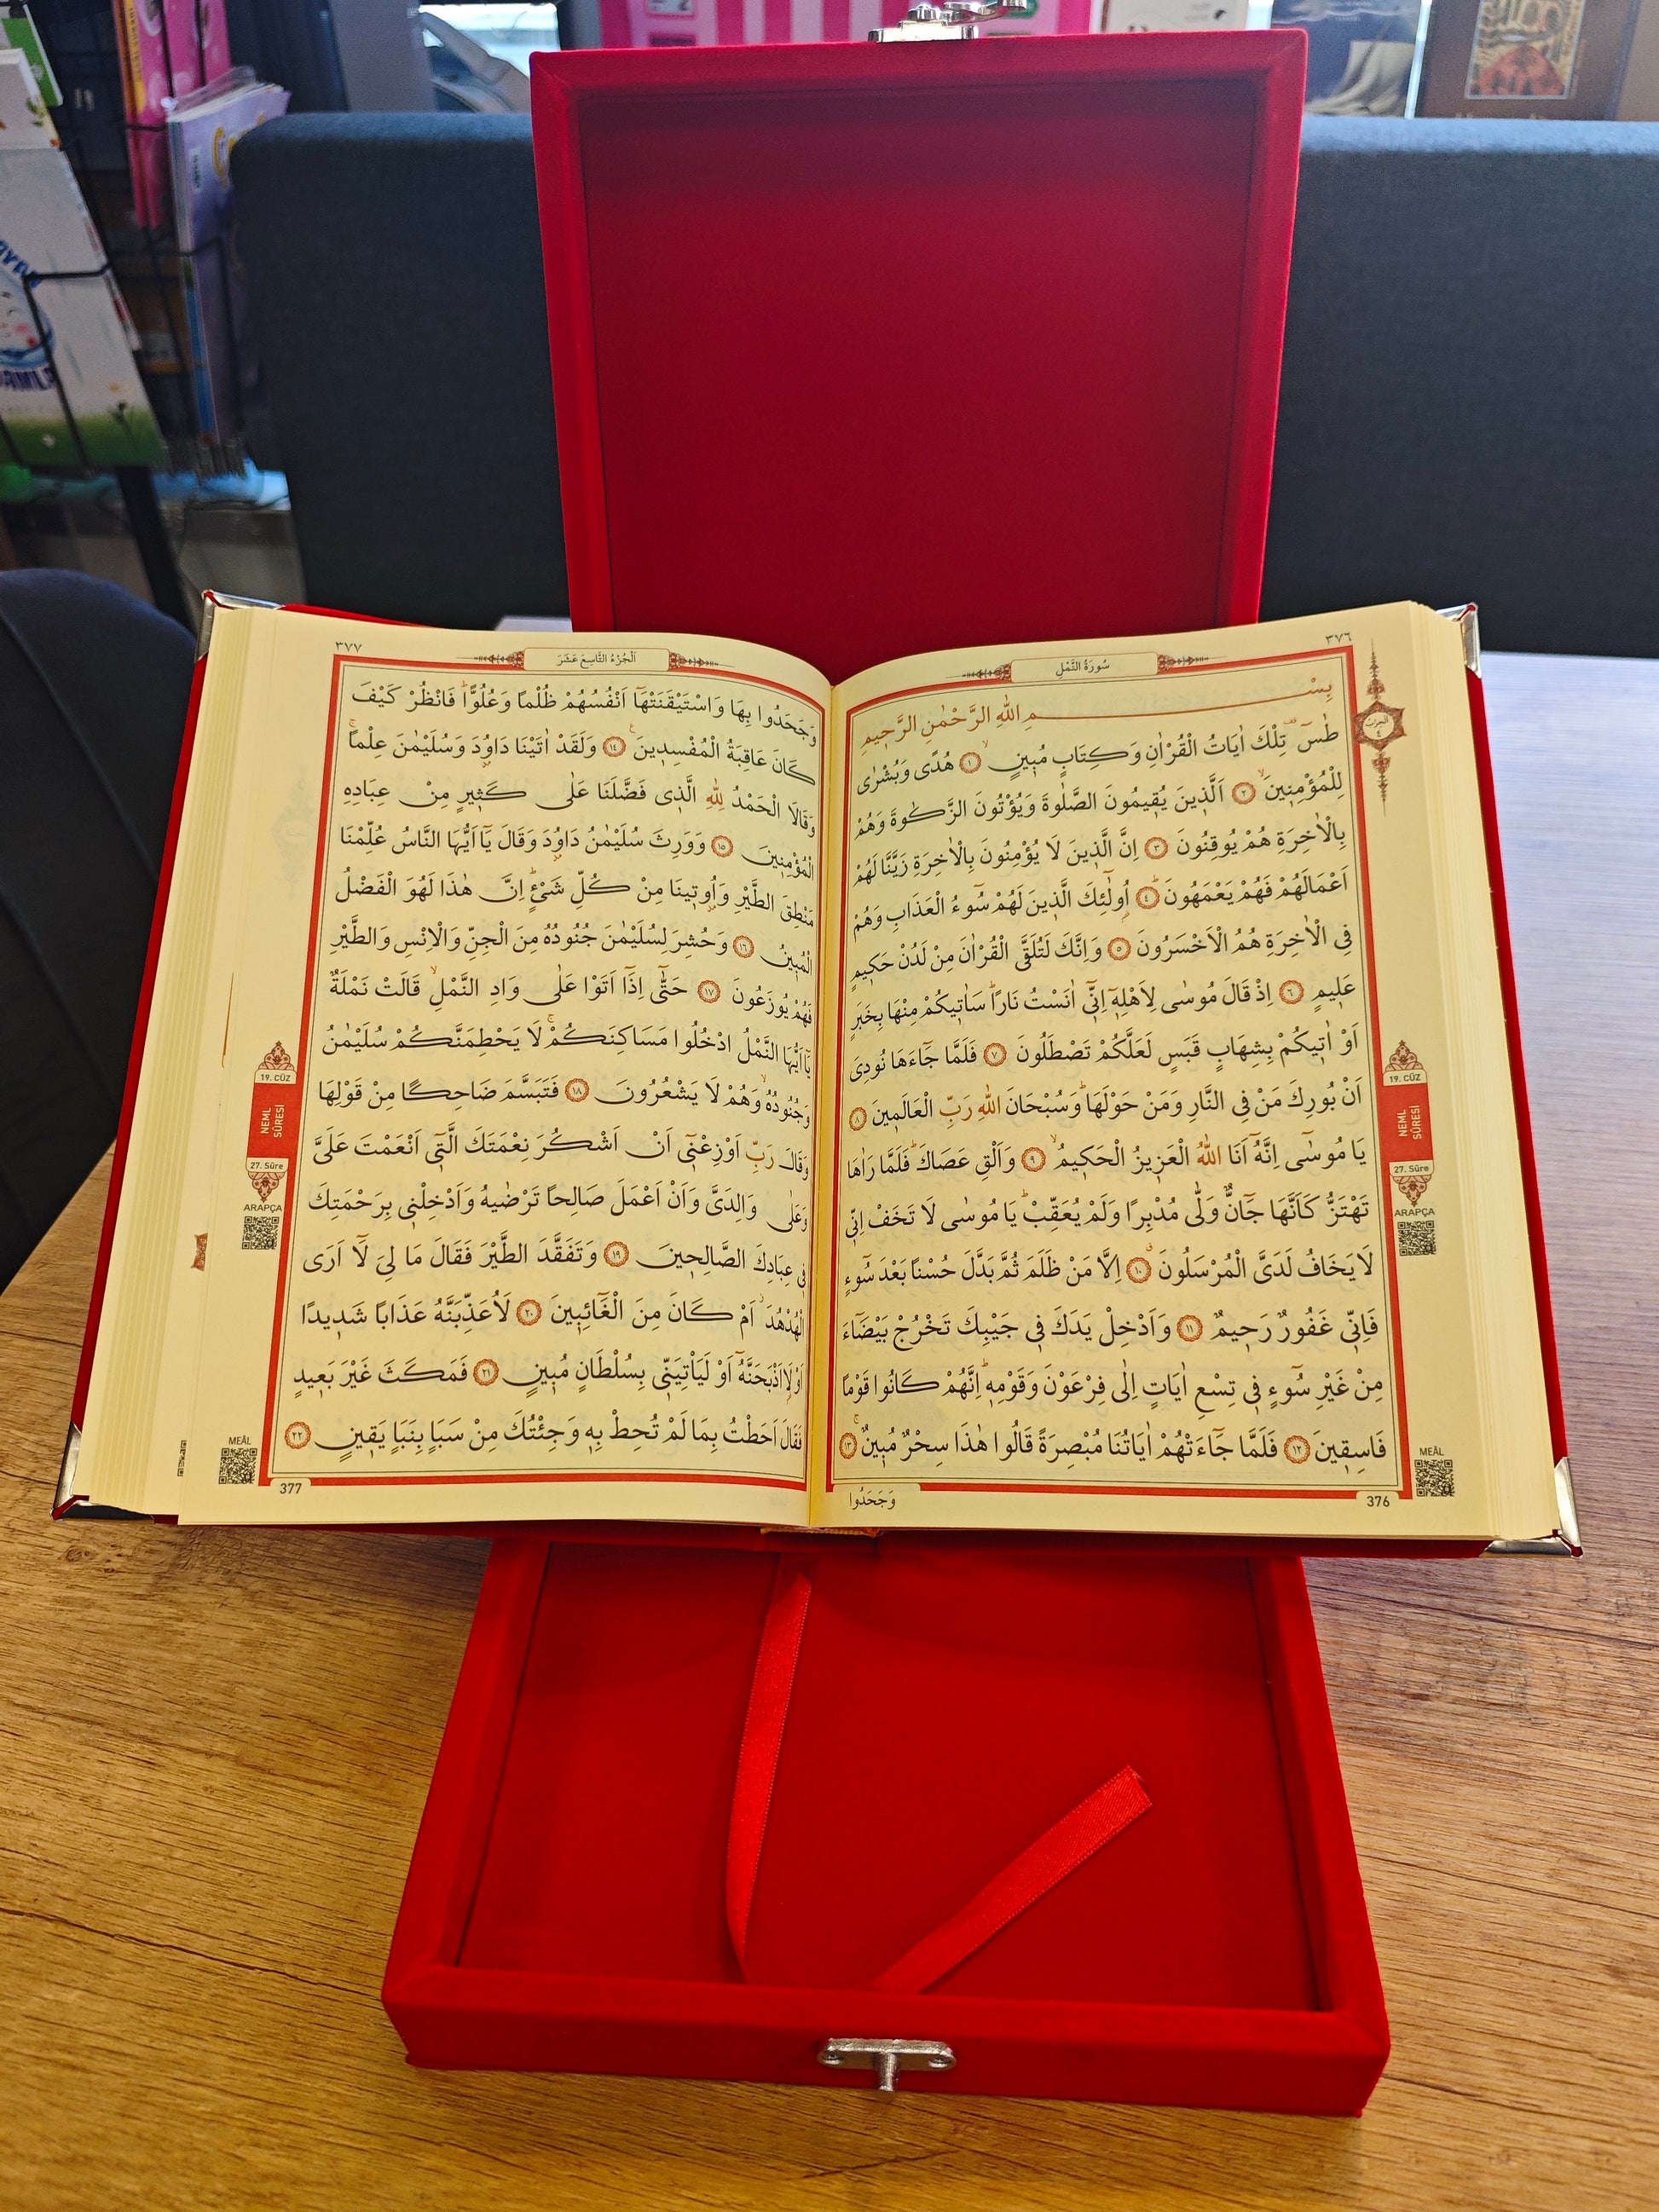 ٣٧٦
سُورَةُ النَّمْلِ
بِسْمِ اللهِ الرَّحْمٰنِ الرَّحِيمِ
طٰسٓ تِلْكَ اٰيَاتُ الْقُرْاٰنِ وَكِتَابٍ مُبِينٍ ١ هُدًى وَبُشْرٰى
لِلْمُؤْمِنِينَ ٢ اَلَّذِينَ يُقِيمُونَ الصَّلٰوةَ وَيُؤْتُونَ الزَّكٰوةَ وَهُمْ
بِالْاٰخِرَةِ هُمْ يُوقِنُونَ ٣ اِنَّ الَّذِينَ لَا يُؤْمِنُونَ بِالْاٰخِرَةِ زَيَّنَّا لَهُمْ
اَعْمَالَهُمْ فَهُمْ يَعْمَهُونَ ٤ اُو۬لٰٓئِكَ الَّذِينَ لَهُمْ سُٓوءُ الْعَذَابِ وَهُمْ
فِي الْاٰخِرَةِ هُمُ الْاَخْسَرُونَ ٥ وَاِنَّكَ لَتُلَقَّى الْقُرْاٰنَ مِنْ لَدُنْ حَكِيمٍ
عَلِيمٍ ٦ اِذْ قَالَ مُوسٰى لِاَهْلِهِٓ اِنِّٓي اٰنَسْتُ نَارًا سَاٰتِيكُمْ مِنْهَا بِخَبَرٍ
اَوْ اٰتِيكُمْ بِشِهَابٍ قَبَسٍ لَعَلَّكُمْ تَصْطَلُونَ ٧ فَلَمَّا جَٓاءَهَا نُودِيَ
اَنْ بُورِكَ مَنْ فِي النَّارِ وَمَنْ حَوْلَهَا وَسُبْحَانَ اللهِ رَبِّ الْعَالَمِينَ ٨
يَا مُوسٰٓى اِنَّهُٓ اَنَا اللهُ الْعَزِيزُ الْحَكِيمُ ٩ وَاَلْقِ عَصَاكَ فَلَمَّا رَاٰهَا
تَهْتَزُّ كَاَنَّهَا جَٓانٌّ وَلّٰى مُدْبِرًا وَلَمْ يُعَقِّبْ يَا مُوسٰى لَا تَخَفْ اِنِّي
لَا يَخَافُ لَدَيَّ الْمُرْسَلُونَ ١٠ اِلَّا مَنْ ظَلَمَ ثُمَّ بَدَّلَ حُسْنًا بَعْدَ سُٓوءٍ
فَاِنِّي غَفُورٌ رَحِيمٌ ١١ وَاَدْخِلْ يَدَكَ فِي جَيْبِكَ تَخْرُجْ بَيْضَٓاءَ
مِنْ غَيْرِ سُٓوءٍ فِي تِسْعِ اٰيَاتٍ اِلٰى فِرْعَوْنَ وَقَوْمِهِ اِنَّهُمْ كَانُوا قَوْمًا
فَاسِقِينَ ١٢ فَلَمَّا جَٓاءَتْهُمْ اٰيَاتُنَا مُبْصِرَةً قَالُوا هٰذَا سِحْرٌ مُبِينٌ ١٣
وَجَحَدُوا
376
الحزب
٤
19. CÜZ
NEML
SÛRESİ
27. Sûre
ARAPÇA
MEÂL
٣٧٧
اَلْجُزْءُ التَّاسِعَ عَشَرَ
وَجَحَدُوا بِهَا وَاسْتَيْقَنَتْهَٓا اَنْفُسُهُمْ ظُلْمًا وَعُلُوًّا فَانْظُرْ كَيْفَ
كَانَ عَاقِبَةُ الْمُفْسِدِينَ ١٤ وَلَقَدْ اٰتَيْنَا دَاوُ۫دَ وَسُلَيْمٰنَ عِلْمًا
وَقَالَا الْحَمْدُ لِلهِ الَّذِي فَضَّلَنَا عَلٰى كَثِيرٍ مِنْ عِبَادِهِ
الْمُؤْمِنِينَ ١٥ وَوَرِثَ سُلَيْمٰنُ دَاوُ۫دَ وَقَالَ يَٓا اَيُّهَا النَّاسُ عُلِّمْنَا
مَنْطِقَ الطَّيْرِ وَاُو۫تِينَا مِنْ كُلِّ شَيْءٍ اِنَّ هٰذَا لَهُوَ الْفَضْلُ
الْمُبِينُ ١٦ وَحُشِرَ لِسُلَيْمٰنَ جُنُودُهُ مِنَ الْجِنِّ وَالْاِنْسِ وَالطَّيْرِ
فَهُمْ يُوزَعُونَ ١٧ حَتّٰٓى اِذَٓا اَتَوْا عَلٰى وَادِ النَّمْلِ قَالَتْ نَمْلَةٌ
يَٓا اَيُّهَا النَّمْلُ ادْخُلُوا مَسَاكِنَكُمْ لَا يَحْطِمَنَّكُمْ سُلَيْمٰنُ
وَجُنُودُهُ وَهُمْ لَا يَشْعُرُونَ ١٨ فَتَبَسَّمَ ضَاحِكًا مِنْ قَوْلِهَا
وَقَالَ رَبِّ اَوْزِعْنِٓي اَنْ اَشْكُرَ نِعْمَتَكَ الَّتِٓي اَنْعَمْتَ عَلَيَّ
وَعَلٰى وَالِدَيَّ وَاَنْ اَعْمَلَ صَالِحًا تَرْضٰيهُ وَاَدْخِلْنِي بِرَحْمَتِكَ
فِي عِبَادِكَ الصَّالِحِينَ ١٩ وَتَفَقَّدَ الطَّيْرَ فَقَالَ مَا لِيَ لَٓا اَرَى
الْهُدْهُدَ اَمْ كَانَ مِنَ الْغَٓائِبِينَ ٢٠ لَاُعَذِّبَنَّهُ عَذَابًا شَدِيدًا
اَوْ لَا۬اَذْبَحَنَّهُٓ اَوْ لَيَأْتِيَنِّي بِسُلْطَانٍ مُبِينٍ ٢١ فَمَكَثَ غَيْرَ بَعِيدٍ
فَقَالَ اَحَطْتُ بِمَا لَمْ تُحِطْ بِهِ وَجِئْتُكَ مِنْ سَبَاٍ بِنَبَاٍ يَقِينٍ ٢٢
377
19. CÜZ
NEML
SÛRESİ
27. Sûre
ARAPÇA
MEÂL